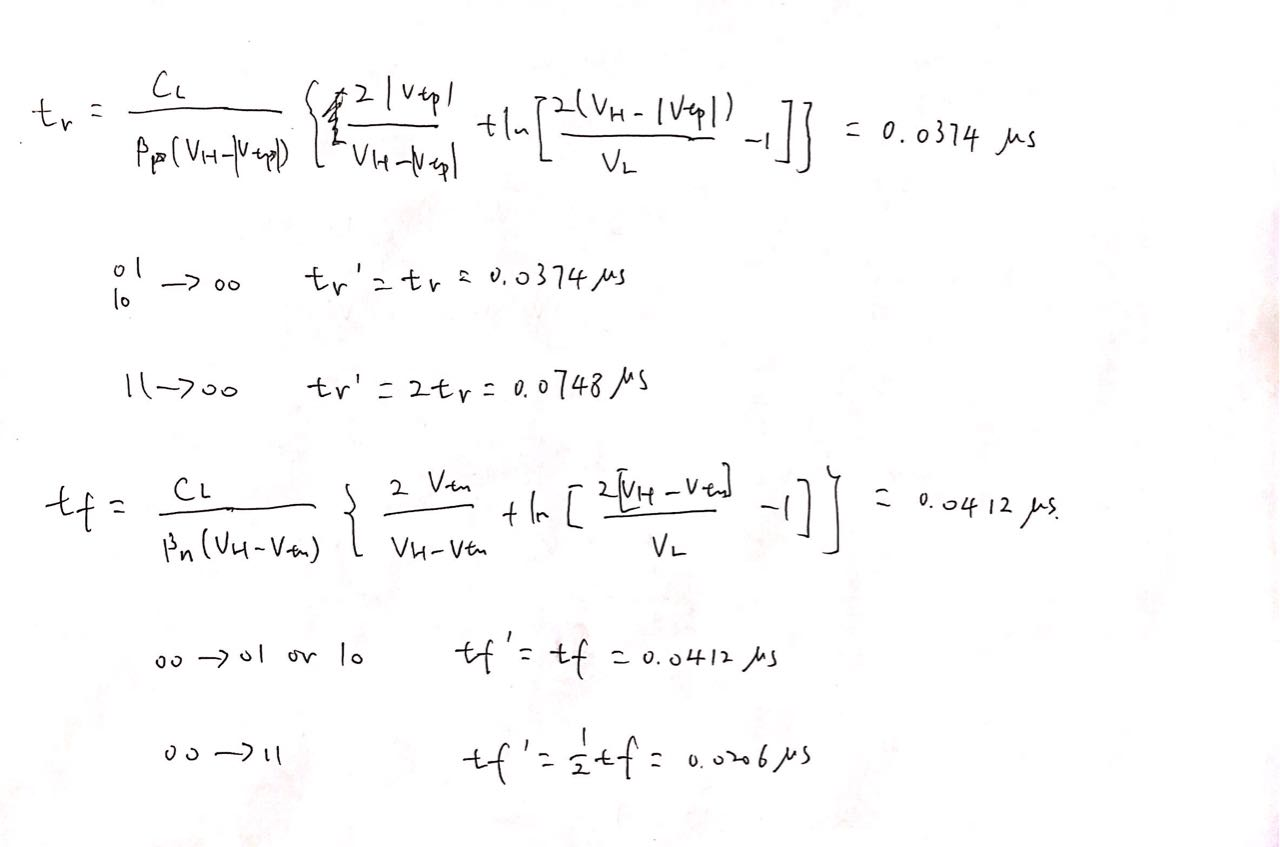 tr = CL / βp(VH-|Vtp|) { 2|Vtp| / VH-|Vtp| + ln [ 2(VH-|Vtp|) / VL -1 ] } = 0.0374 μs
01
10 → 00 tr' = tr = 0.0374 μs
11 → 00 tr' = 2tr = 0.0748 μs
tf = CL / βn(VH-Vtn) { 2 Vtn / VH-Vtn + ln [ 2[VH-Vtn] / VL -1 ] } = 0.0412 μs.
00 → 01 or 10 tf' = tf = 0.0412 μs
00 → 11 tf' = 1/2 tf = 0.0206 μs